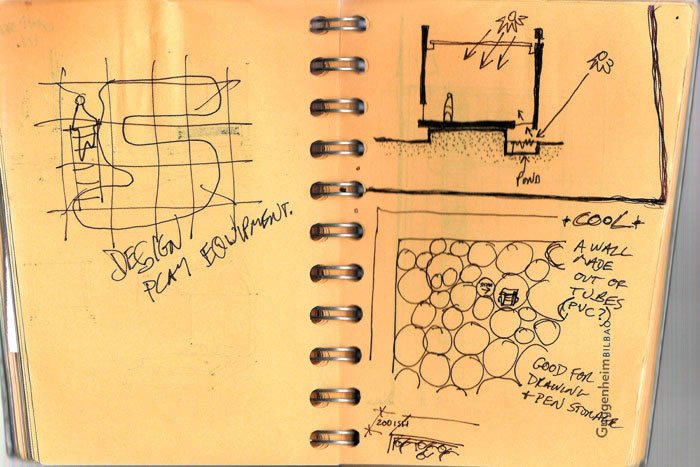 DESIGN
PLAY EQUIPMENT.
POND
+COOL+
A WALL
MADE
OUT OF
TUBES
(PVC?)
GOOD FOR
DRAWING
+ PEN STORAGE
GuggenheimBILBAO
200ISH